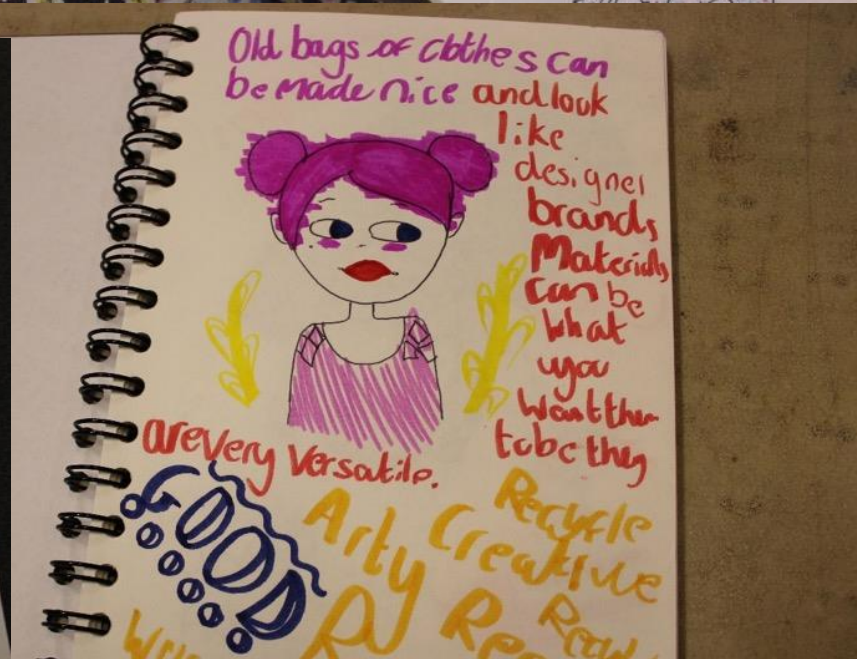 Old bags of clothes can
be made nice and look
like
designer
brands
Materials
can be
what
you
want them
to be they
are very versatile.
GOOD
Arty
Recycle
Creative